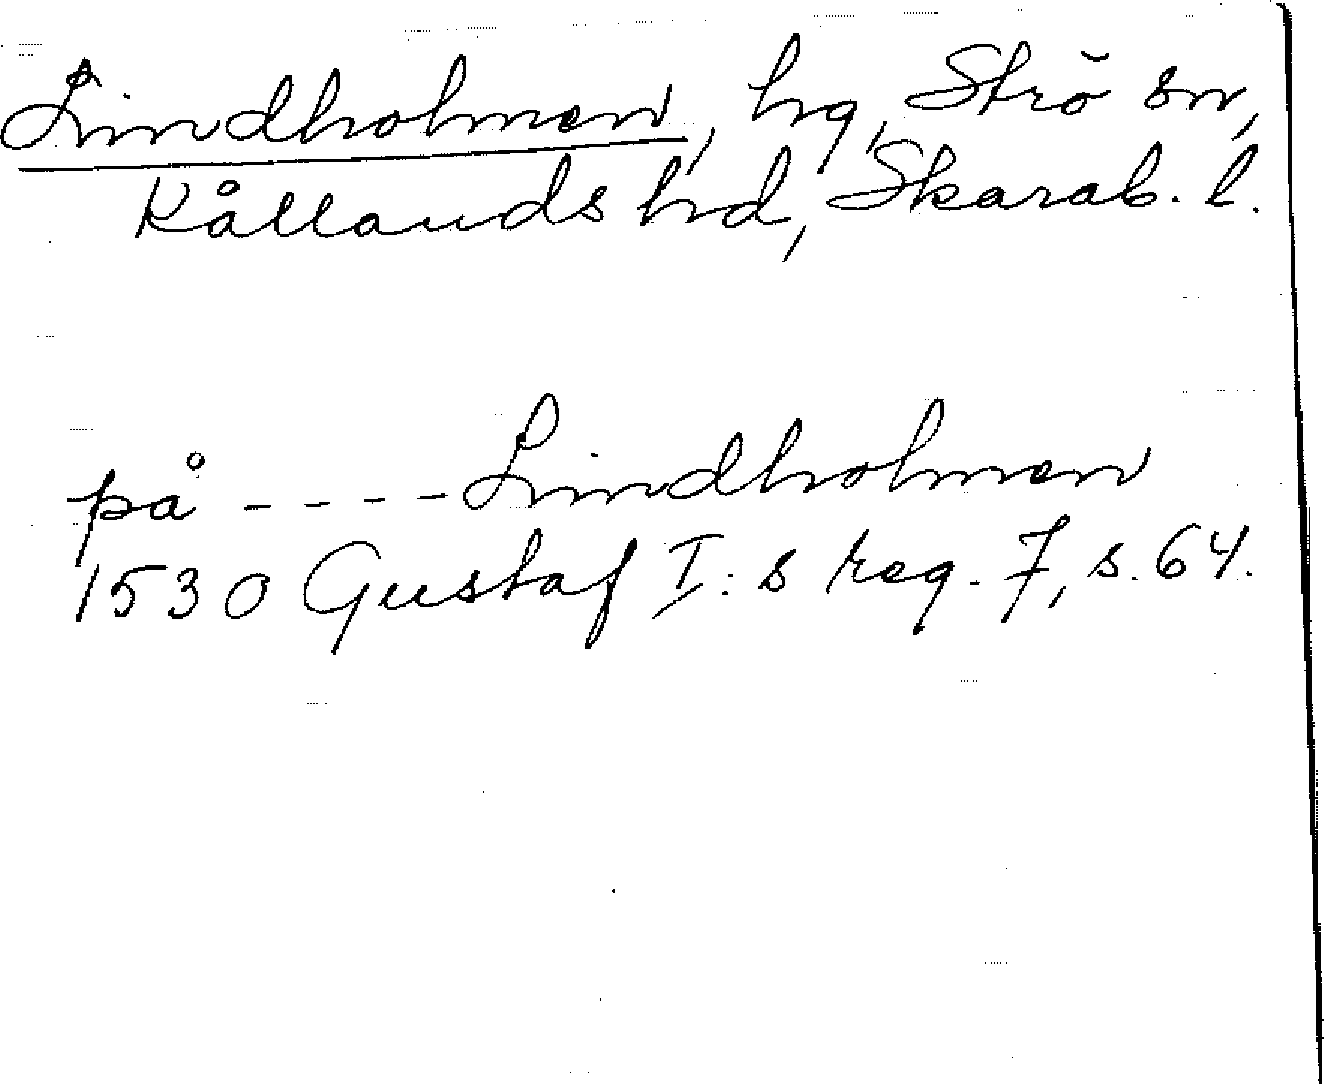 Lindholmen, hg, Strö sn,
Kållands hd, Skarab. l.
på - - - - Lindholmen
1530 Gustaf I: s reg. 7, s. 64.